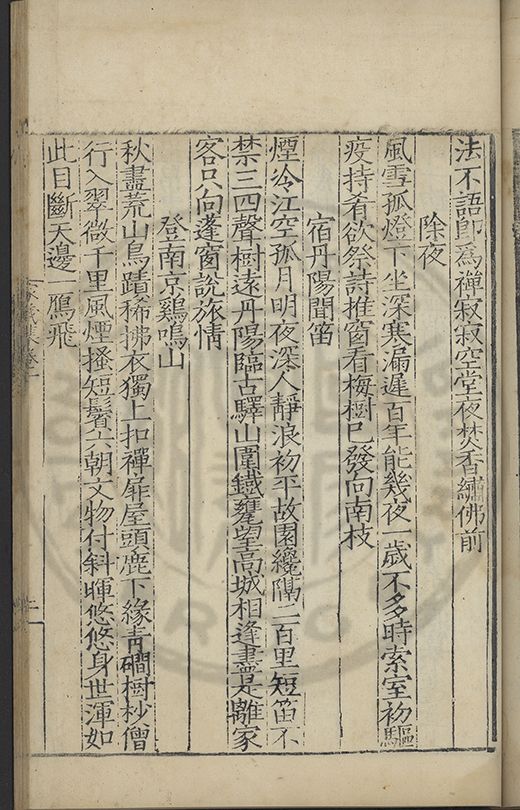 法不語即爲禪寂寂空堂夜焚香繡佛前
除夜
風雪孤燈下坐深寒漏遲百年能幾夜一歲不多時索室初驅
疫持肴欲祭詩推窗看梅樹已發向南枝
宿丹陽聞笛
煙冷江空孤月明夜深人靜浪初平故園纔隔二百里短笛不
禁三四聲樹遠丹陽臨古驛山圍鐵甕望高城相逢盡是離家
客只向蓬窗說旅情
登南京鷄鳴山
秋盡荒山鳥蹟稀拂衣獨上扣禪扉屋頭鹿下緣靑磵樹杪僧
行入翠微千里風煙搔短鬢六朝文物付斜暉悠悠身世渾如
此目斷天邊一鴈飛